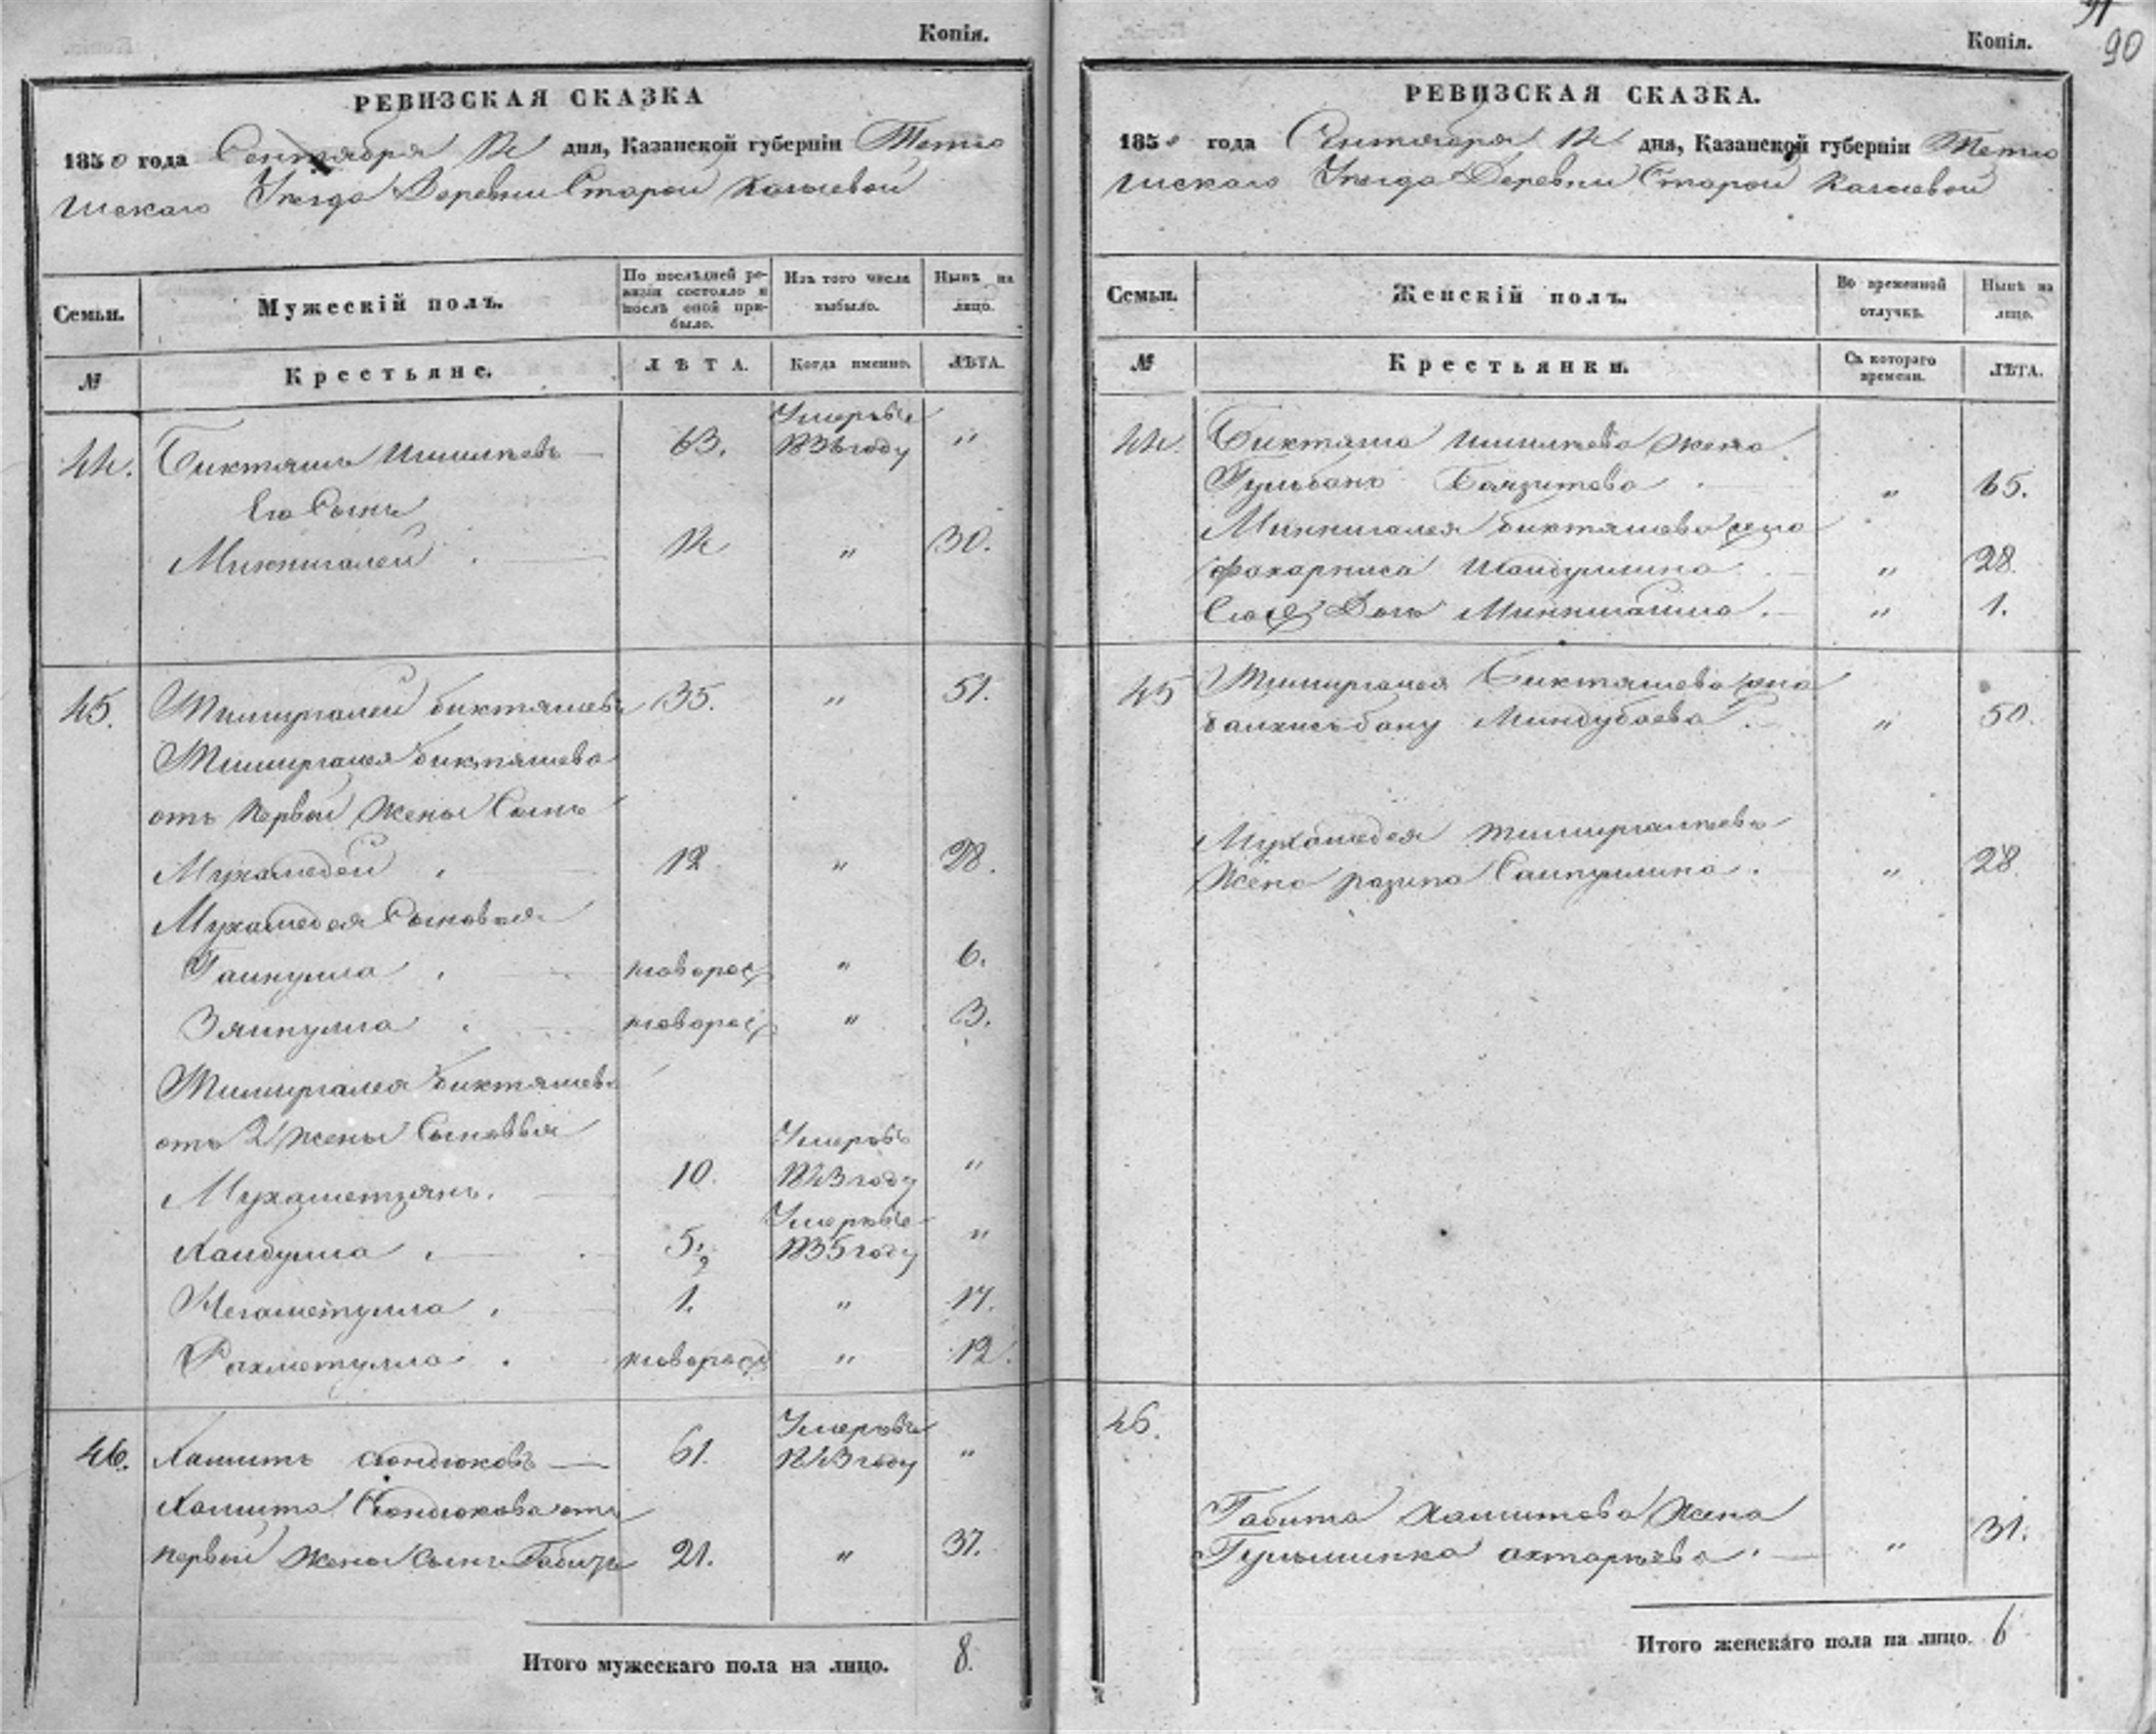 Копія.
РЕВИЗСКАЯ СКАЗКА
1850 года Сентября 14 дня, Казанской губерніи Тетю
шскаго Уезда Деревни Старой Каюшевой
Семьи. Мужескій полъ. По послѣдней ре-визіи состояло и послѣ оной при-было. Изъ того числа выбыло. Нынѣ на лицо.
№ Крестьяне. ЛѢТА. Когда именно. ЛѢТА.
44. Биктяшъ Ишмѣевъ 63. Умеръ въ 1836 году "
Его Сынъ
Миннигалей 14 " 30.
45. Тимиргалей Биктяшевъ 35. " 51.
Тимиргалея Биктяшева
отъ первой жены Сынъ
Мухамедей 12 " 28.
Мухамедея Сыновья
Гайнулла новорож " 6.
Зяйнулла новорож " 3.
Тимиргалея Биктяшева
отъ 2 жены Сыновья
Мухаметзянъ. 10. Умеръ въ 1843 году "
Хайбулла 5½ Умеръ въ 1835 году "
Негаметулла 1. " 17.
Рахметулла новорожд " 12.
46. Хамитъ Сюндюковъ 61. Умеръ въ 1843 году "
Хамита Сюндюкова отъ
первой жены Сынъ Габитъ 21. " 37.
Итого мужескаго пола на лицо. 8.
90
Копія.
РЕВИЗСКАЯ СКАЗКА.
1850 года Сентября 14 дня, Казанской губерніи Тетю
шскаго Уезда Деревни Старой Каюшевой
Семьи. Женскій полъ. Во временной отлучкѣ. Нынѣ на лицо.
№ Крестьянки. Съ котораго времени. ЛѢТА.
44. Биктяша Ишмѣева жена
Гульбану Баязитова " 65.
Миннигалея Биктяшева жена
Фахарниса " 28.
Ихъ Дочь 1.
45 Тимиргалея Биктяшева жена
Миндубаева " 50.
Мухамедея Тимиргалѣева
жена Разипа " 28.
46.
Габита Хамитова жена
Ахтарѣева " 31.
Итого женскаго пола на лицо. 6